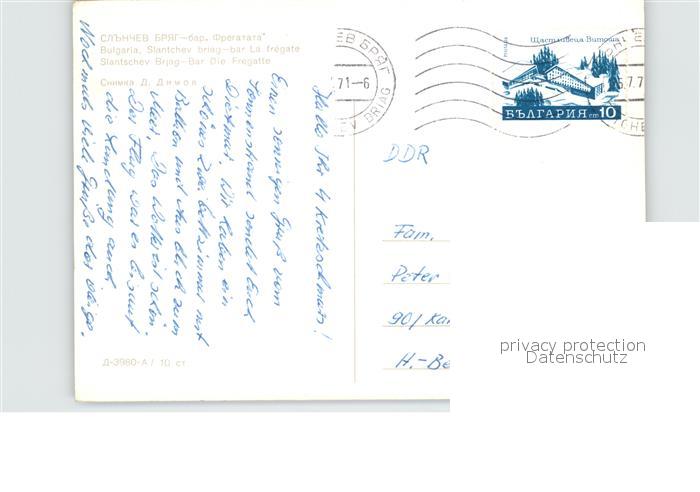 СЛЪНЧЕВ БРЯГ—бар. „Фрегатата"
Bulgaria, Slantchev briag—bar La frégate
Slantschev Brjag—Bar Die Fregatte
Снимка Д. Димов
Hallo Ihr 4
Einen sonnigen Gruß vom
Sonnenstrand sendet Euch
Dietmar. Wir haben ein
Zweibettzimmer mit
Balkon und Ausblick zum
Meer. Das Wetter ist schön.
Der Flug war
die Landung auch.
Nochmals viele Grüße
Д-3980-А / 10 ст
ЕВ БРЯГ
71-6
BRIAG
Щастливеца Витоша
ПОЩА
БЪЛГАРИЯ ст 10
DDR
Fam.
Peter
901 Kar
H.-Be
privacy protection
Datenschutz